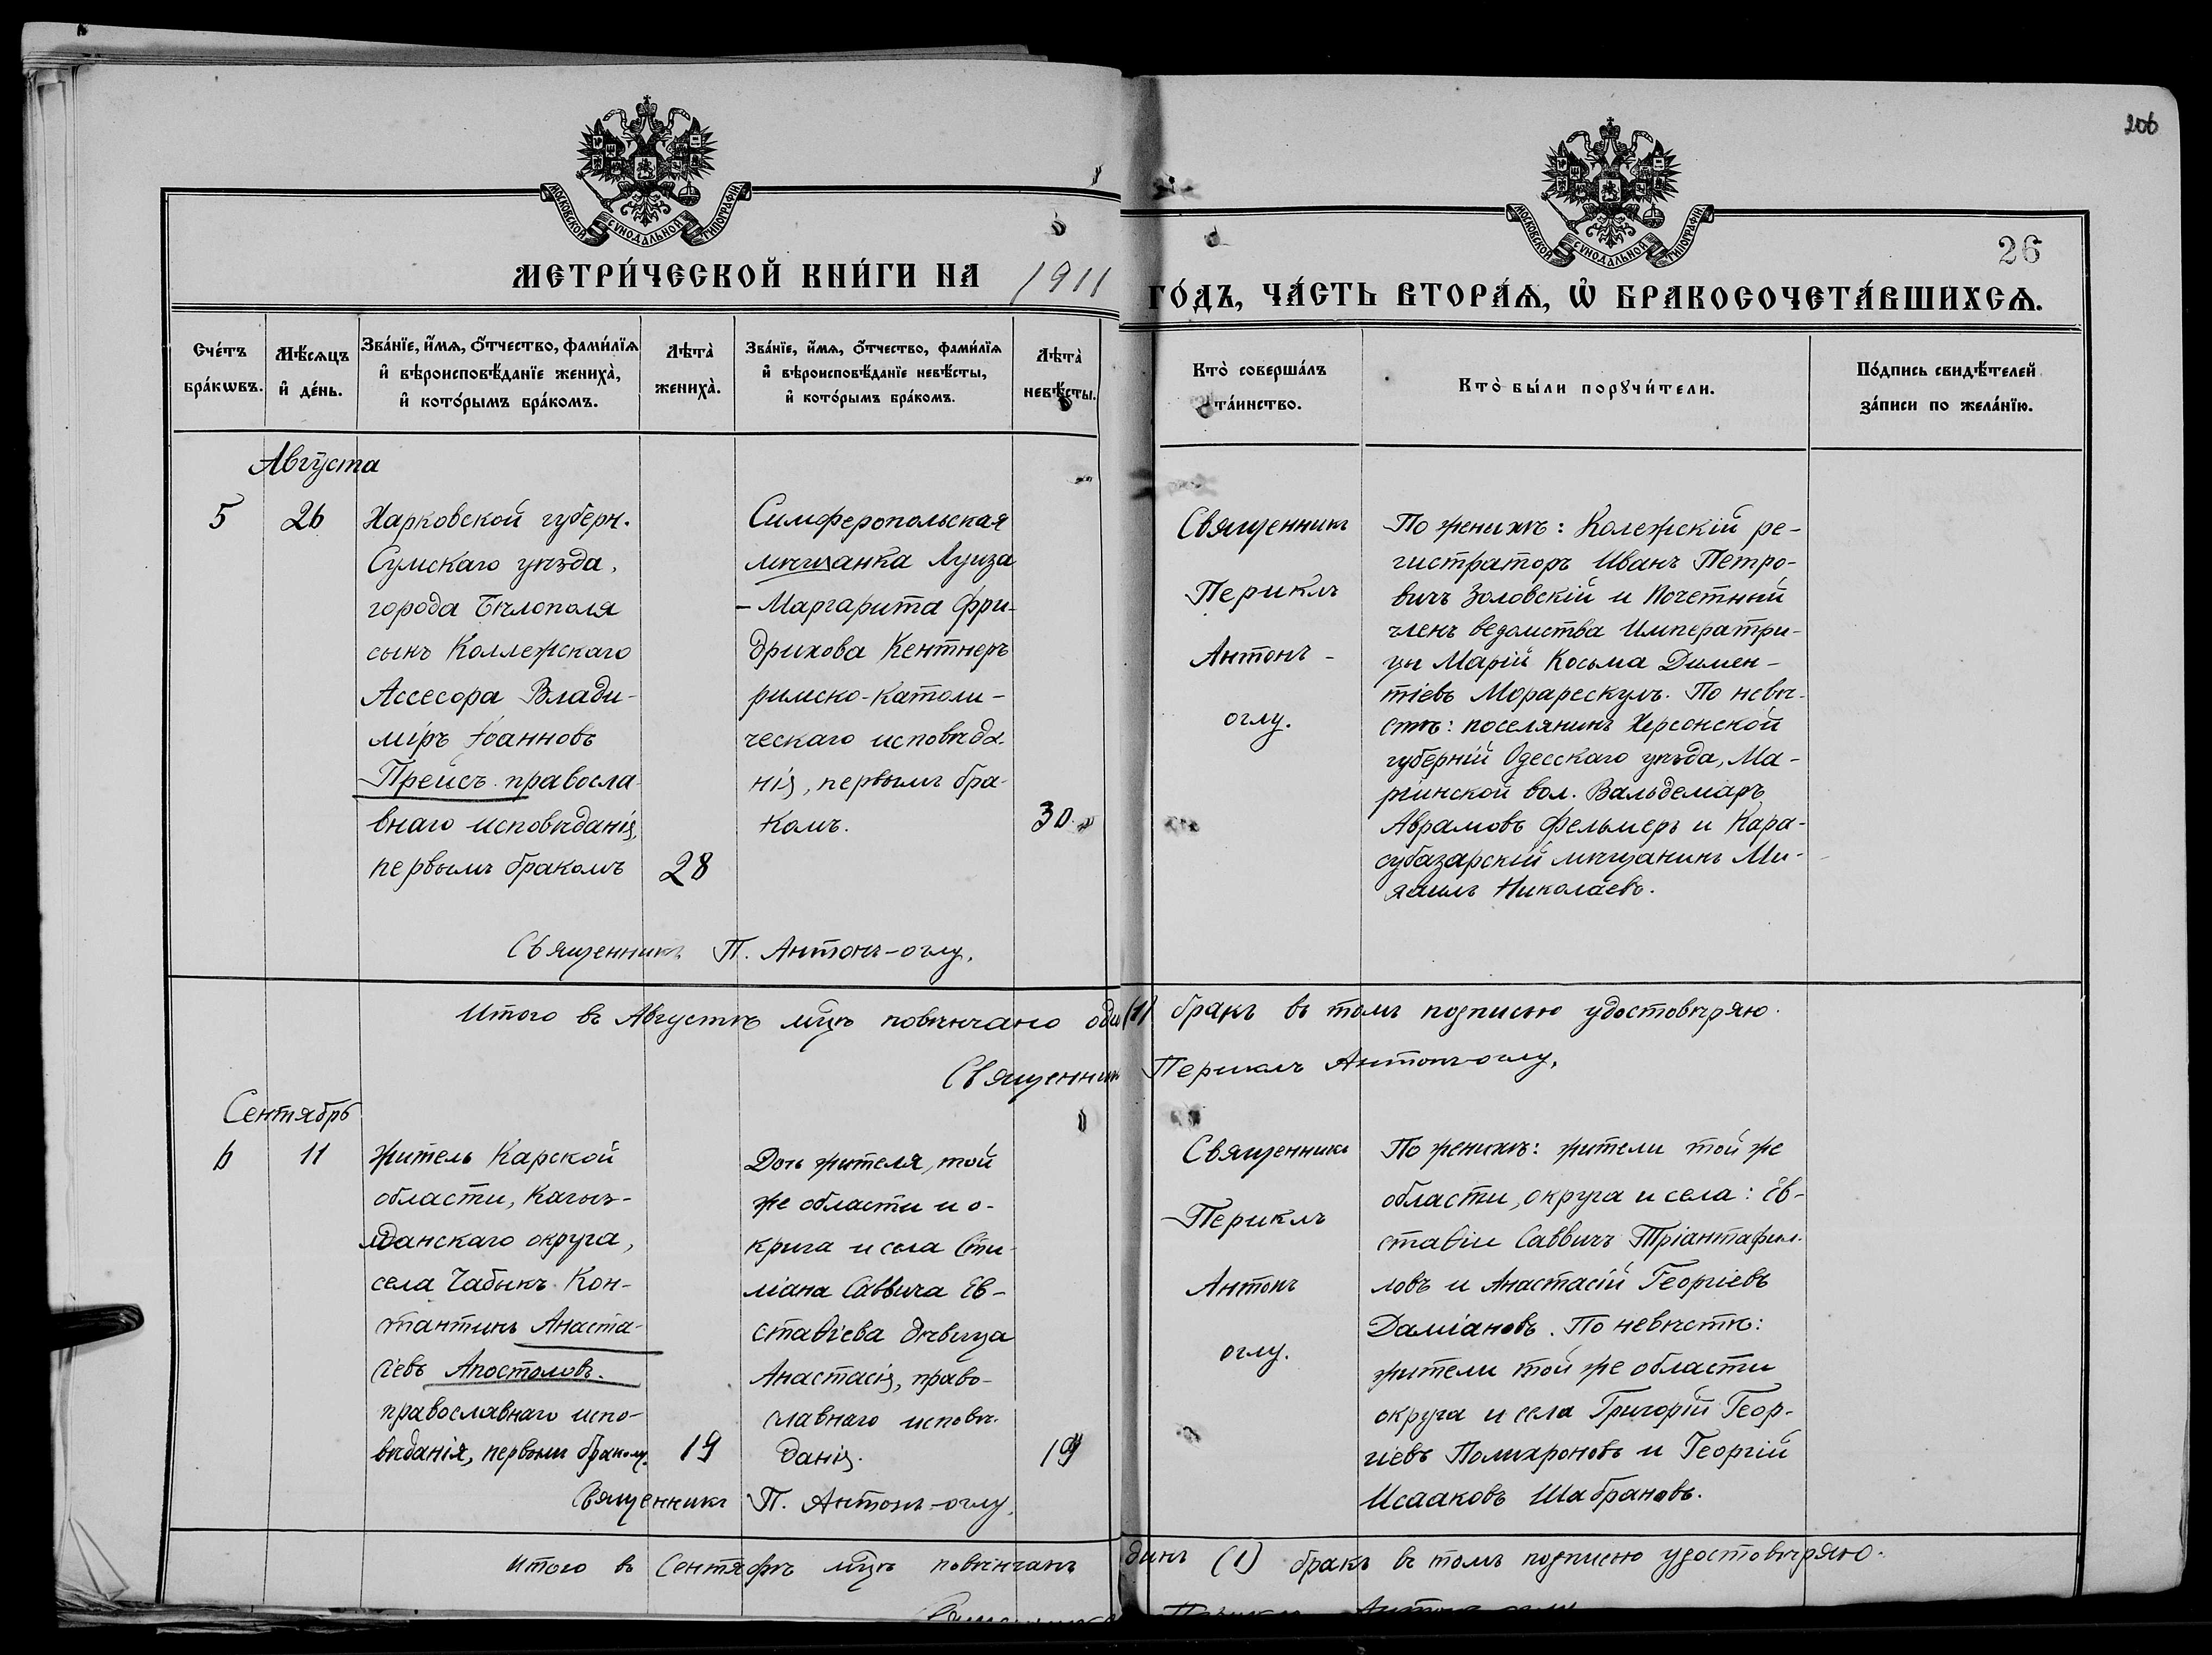 206
МОСКОВСКОЙ СѴНОДАЛЬНОЙ ТИПОГРАФІИ
МОСКОВСКОЙ СѴНОДАЛЬНОЙ ТИПОГРАФІИ
26
МЕТРИ́ЧЕСКОЙ КНИ́ГИ НА 1911
ГО́ДЪ, ЧА́СТЬ ВТОРА́Ѧ, Ѡ҆ БРАКОСОЧЕТА́ВШИХСѦ.
Сче́тъ
бра́кѡвъ.
Мѣ́сѧцъ
и҆ де́нь.
Зва́нїе, и҆́мѧ, ѻ҆́тчество, фами́лїѧ
и҆ вѣроисповѣ́данїе жениха̀,
и҆ кото́рымъ бра́комъ.
Лѣта̀
жениха̀.
Зва́нїе, и҆́мѧ, ѻ҆́тчество, фами́лїѧ
и҆ вѣроисповѣ́данїе невѣ́сты,
и҆ кото́рымъ бра́комъ.
Лѣта̀
невѣ́сты.
Кто̀ соверша́лъ
та́инство.
Кто̀ бы́ли порꙋчи́тели.
По́дпись свидѣ́телей
за́писи по жела́нїю.
Августа
5
26
Харковской губерн.
Сумскаго уѣзда,
города Бѣлополя
сынъ Коллежскаго
Ассесора Влади-
міръ Іоанновъ
Прейсъ правосла
внаго исповѣданія,
первымъ бракомъ
28
Симферопольская
мѣщанка Луиза
- Маргарита Фри-
дрихова Кентнеръ
римско-католи-
ческаго исповѣда-
нія, первымъ бра-
комъ.
30
Священникъ
Периклъ
Антонъ -
оглу.
По женихѣ: Колежскій ре-
гистраторъ Иванъ Петро-
вичъ Золовскій и Почетный
членъ ведомства Императри-
цы Марій Косьма Димен-
тіевъ Морарескулъ. По невѣ-
стѣ: поселянинъ Херсонской
губерній Одесскаго уѣзда, Ма-
ріинской вол. Вальдемаръ
Аврамовъ Фельмеръ и Кара-
субазарскій мѣщанинъ Ми-
хаилъ Николаевъ.
Священникъ П. Антонъ-оглу.
Итого въ Августѣ мцѣ повѣнчано оди (1) бракъ въ томъ подписью удостовѣряю.
Священник Периклъ Антонъ-оглу.
Сентябрь
6
11
житель Карской
области, Кагыз-
манскаго округа,
села Чабыкъ Кон-
тантинъ Анаста-
сіевъ Апостоловъ.
православнаго испо-
вѣданія, первымъ бракомъ.
19
Дочь жителя, той
же области и о-
круга и села Сти-
ліана Саввича Ев-
ставіева дѣвица
Анастасія, право-
славнаго исповѣ-
данія.
19
Священникъ
Периклъ
Антонъ
оглу.
По женихѣ: жители той же
области, округа и села: Ев-
ставіи Саввичъ Тріантафил-
ловъ и Анастасій Георгіевъ
Даміановъ. По невѣстѣ:
жители той же области
округа и села Григорій Геор-
гіевъ Полихроновъ и Георгій
Исааковъ Шабрановъ.
Священникъ П. Антонъ-оглу.
Итого въ Сентябрѣ мцѣ повѣнчанъ динъ (1) бракъ въ томъ подписью удостовѣряю.